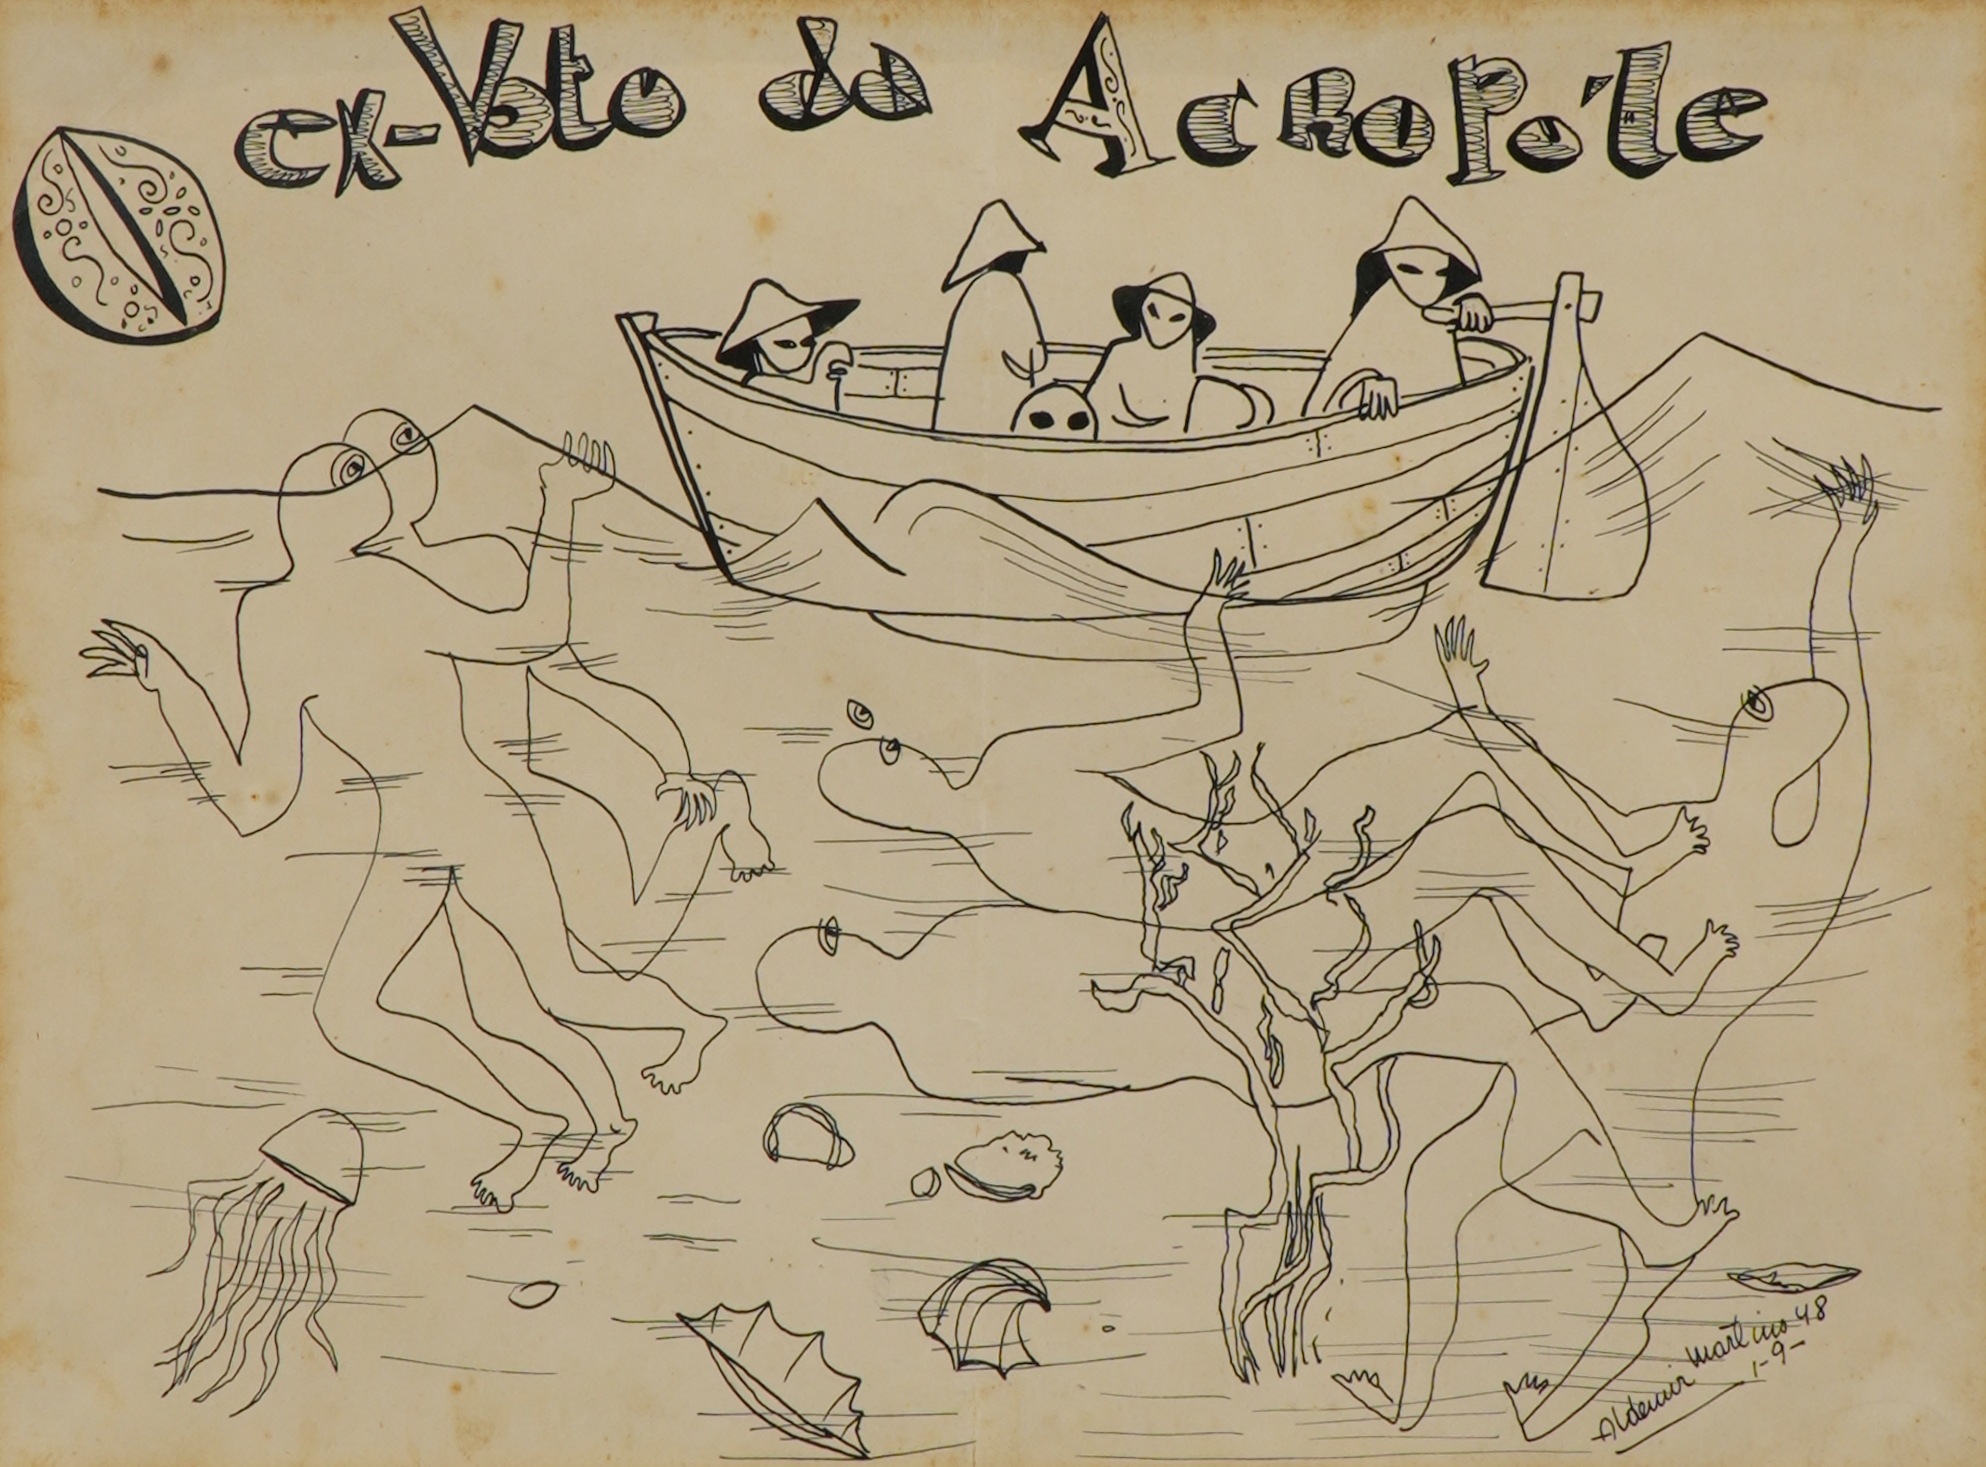 O ex-Voto da Acropóle
Aldemir Martins 48
1-9-